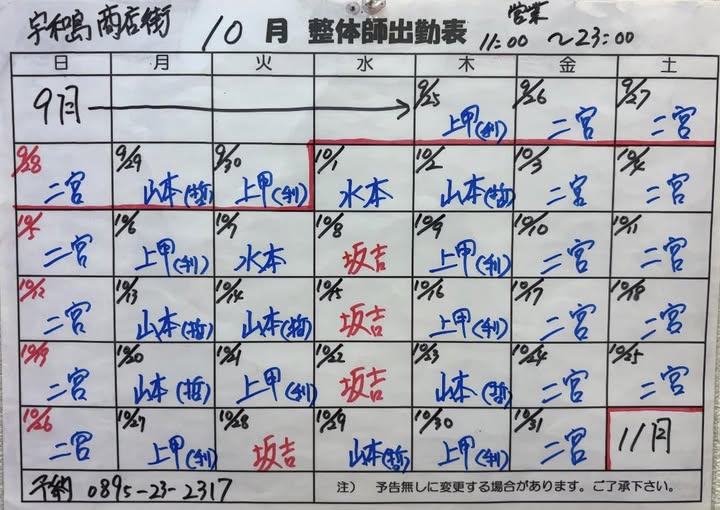 宇和島 商店街 10月 整体師出勤表 営業 11:00 ～23:00
日 月 火 水 木 金 土
9月 9/25 上甲(利) 9/26 二宮 9/27 二宮
9/28 二宮 9/29 山本(哲) 9/30 上甲(利) 10/1 水本 10/2 山本(哲) 10/3 二宮 10/4 二宮
10/5 二宮 10/6 上甲(利) 10/7 水本 10/8 坂吉 10/9 上甲(利) 10/10 二宮 10/11 二宮
10/12 二宮 10/13 山本(哲) 10/14 山本(哲) 10/15 坂吉 10/16 上甲(利) 10/17 二宮 10/18 二宮
10/19 二宮 10/20 山本(哲) 10/21 上甲(利) 10/22 坂吉 10/23 山本(哲) 10/24 二宮 10/25 二宮
10/26 二宮 10/27 上甲(利) 10/28 坂吉 10/29 山本(哲) 10/30 上甲(利) 10/31 二宮 11月
予約 0895-23-2317 注） 予告無しに変更する場合があります。ご了承下さい。